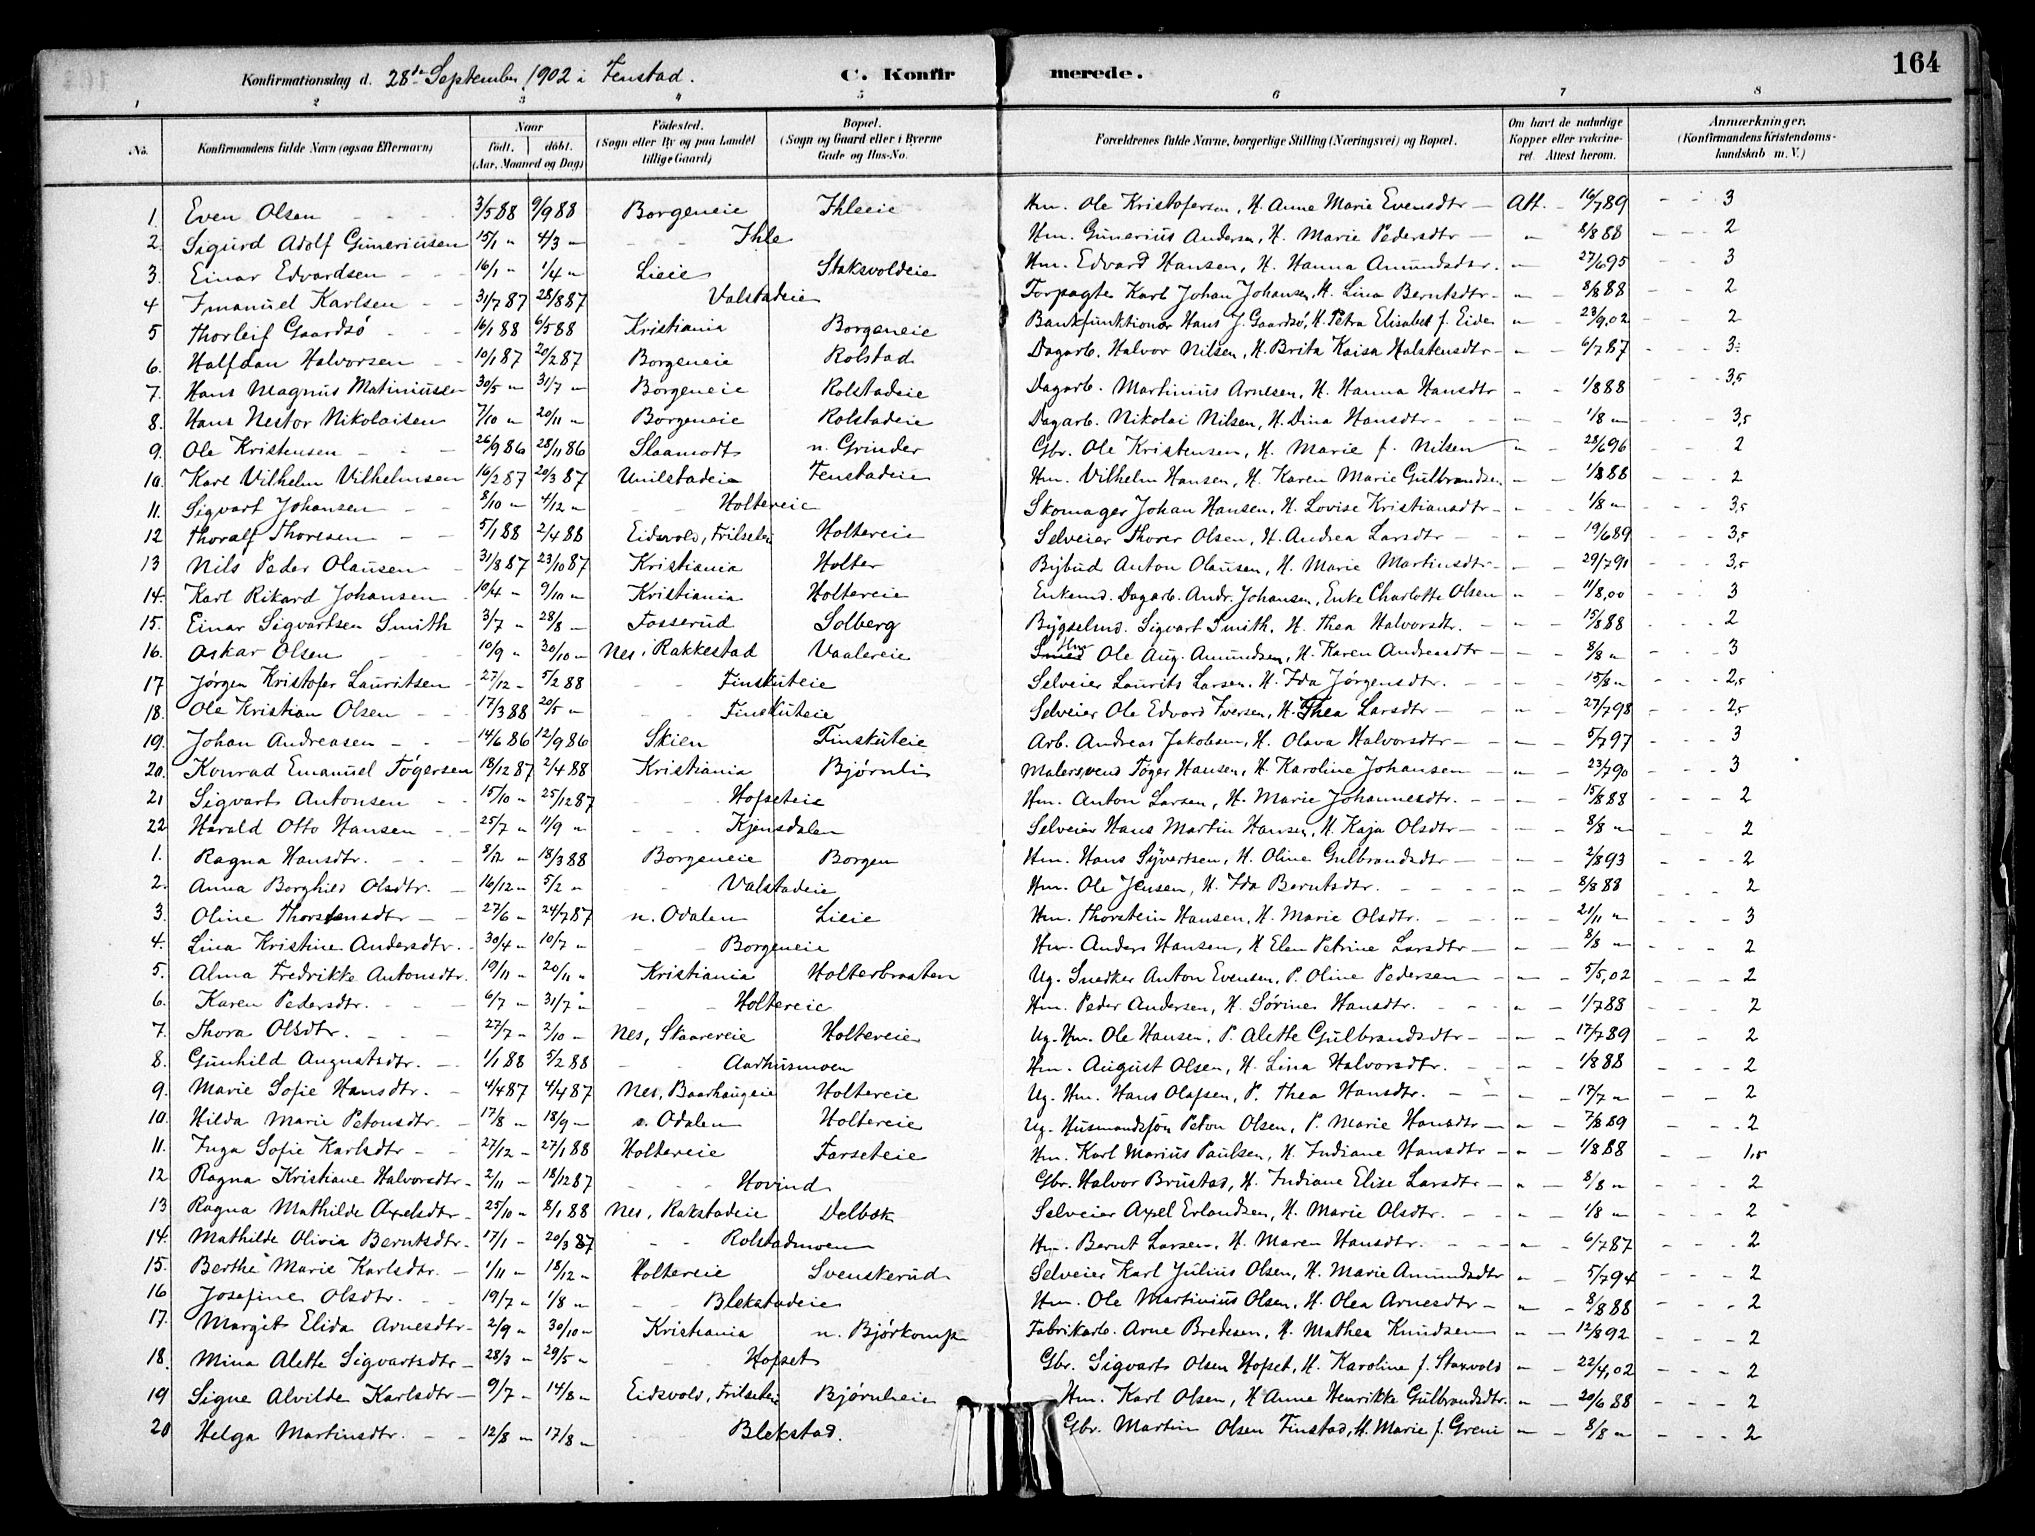 164
Konfirmationsdag d. 28de September 1902 i Fenstad. C. Konfirmerede.
1 2 3 4 5 6 7 8
No. Konfirmandens fulde Navn (ogsaa Efternavn) Naar født. døbt. (Aar, Maaned og Dag) Fødested. (Sogn eller By og paa Landet tillige Gaard) Bopæl. (Sogn og Gaard eller i Byerne Gade og Hus-No. Forældrenes fulde Navne, borgerlige Stilling (Næringsvei) og Bopæl. Om havt de naturlige Kopper eller vakcineret. Attest herom. Anmærkninger, (Konfirmandens Kristendomskundskab m. V.)
1. Even Olsen 3/5 88 9/9 88 Borgeneie Ihleeie Hm. Ole Kristofersen, H. Anne Marie Evensdtr Att. 16/7 89 3
2. Sigurd Adolf Guneriusen 15/1 " 4/3 " Ihle Hm. Gunerius Andersen, H. Marie Pedersdtr " 8/8 88 2
3. Einar Edvardsen 16/1 " 1/4 " Lieie Staksvoldeie Hm. Edvard Hansen, H. Hanna Amundsdtr. " 27/6 95 3
4 Imanuel Karlsen 31/7 87 28/8 87 Valstadeie Forpagter Karl Johan Johansen, H. Lina Berntsdtr " 8/8 88 2
5 Thorleif Gaardsø 16/1 88 6/5 88 Kristiania Borgeneie Bankfunktionær Hans J. Gaardsø, H. Petra Elisabet f. Eide " 23/9,02 2
6. Halfdan Halvorsen 10/1 87 20/2 87 Borgeneie Rolstad Dagarb. Halvor Nilsen, H. Brita Kaisa Halstensdtr " 6/7 87 3
7. Hans Magnus Matiniussen 30/5 " 31/7 " Borgeneie Rolstadeie Dagarb. Martinius Arnesen, H. Hanna Hansdtr " 1/8 88 3,5
8. Hans Nestor Nikolaisen 7/10 " 20/11 " Borgeneie Rolstadeie Dagarb. Nikolai Nilsen, H. Dina Hansdtr " 1/8 " 3,5
9. Ole Kristensen 26/9 86 28/11 86 Slaamodt n. Grinder Gbr. Ole Kristensen, H. Marie f. Nilsen " 28/6 96 2
10. Karl Vilhelm Vilhelmsen 16/2 87 20/3 87 Unilstadeie Fenstadeie Hm. Vilhelm Hansen, H. Karen Marie Gulbrandsen " 1/8 88 2
11. Sigvart Johansen 8/10 " 4/12 " Holtereie Skomager Johan Hansen, H. Lovise Kristiansdtr " 1/8 " 3,5
12 Thoralf Thoresen 5/1 88 2/4 88 Eidsvold, Frilseteie Holtereie Selveier Thorer Olsen, H. Andrea Larsdtr " 19/6 89 3,5
13 Nils Peder Olausen 31/8 87 23/10 87 Kristiania Holter Bybud Anton Olausen, H. Marie Martinsdtr " 29/7 91 3,5
14. Karl Rikard Johansen 10/4 " 9/10 " Kristiania Holtereie Enkemd. Dagarb. Andr. Johansen, Enke Charlotte Olsen " 11/8,00 3
15. Einar Sigvartsen Smith 3/7 " 28/8 " Fosserud Solberg Bygselmd. Sigvart Smith, H. Thea Halvorsdtr. " 15/8 88 2
16. Oskar Olsen 10/9 " 30/10 " Nes, Rakkestad Vaalereie Hm Ole Aug. Amundsen, H. Karen Andreasdtr " 8/8 " 3
17 Jørgen Kristofer Lauritsen 27/12 " 5/2 88 Finskuteie Selveier Laurits Larsen, H. Ida Jørgensdtr. " 15/8 " 2,5
18. Ole Kristian Olsen 17/3 88 20/5 " Finskuteie Selveier Ole Edvard Iversen, H. Thea Larsdtr " 27/7 98 2,5
19. Johan Andreasen 14/6 86 12/9 86 Skien Finskuteie Arb. Andreas Jakobsen, H. Olava Halvorsdtr " 5/7 97 3
20. Konrad Emanuel Tøgersen 18/12 87 2/4 88 Kristiania Bjørnli Malersvend Tøger Hansen, H. Karoline Johansen " 23/7 90 3
21 Sigvart Antonsen 15/10 " 25/12 87 Hofseteie Hm. Anton Larsen, H. Marie Johannesdtr. " 15/8 88 2
22 Harald Otto Hansen 25/7 " 11/9 " Kjensdalen Selveier Hans Martin Hansen, H. Kaja Olsdtr " 8/8 " 2
1. Ragna Hansdtr. 8/12 " 18/3 88 Borgeneie Borgen Hm. Hans Syvertsen, H. Oline Gulbrandsdtr " 2/8 93 2
2. Anna Borghild Olsdtr. 16/12 " 5/2 " Valstadeie Hm. Ole Jensen, H. Ida Berntsdtr. " 8/8 88 2
3. Oline Thorstensdtr 27/6 " 24/7 87 n. Odalen Lieie Hm. Thorstein Hansen, H. Marie Olsdtr. " 21/11 " 3
4. Lina Kristine Andersdtr. 30/4 " 10/7 " Borgeneie Hm. Anders Hansen, H Elen Petrine Larsdtr " 8/8 " 2
5. Alma Fredrikke Antonsdtr. 19/11 " 20/11 " Kristiania Holterbraaten Ug. Snedker Anton Evensen, P. Oline Pedersen " 5/5,02 2
6. Karen Pedersdtr. 6/7 " 31/7 " Holtereie Hm. Peder Andersen, H. Sørine Hansdtr. " 1/7 88 2
7. Thora Olsdtr. 27/7 " 2/10 " Nes, Skaarereie Holtereie Ug. Hm. Ole Hansen, P. Alette Gulbrandsdtr " 17/7 89 2
8. Gunhild Augustsdtr. 1/1 88 5/2 88 Aarhusmoen Hm. August Olsen, H. Lina Halvorsdtr. " 1/8 88 2
9. Marie Sofie Hansdtr. 4/4 87 4/4 87 Nes, Baarhaugeie Holtereie Ug. Hm. Hans Olafsen, P. Thea Hansdtr. " 17/7 " 2
10. Hilda Marie Petonsdtr. 17/8 " 18/9 " s. Odalen Holtereie Ug. Husmandssøn Peton Olsen, P. Marie Hansdtr " 7/8 89 2
11. Inga Sofie Karlsdtr 27/12 " 27/1 88 Holtereie Farseteie Hm. Karl Marius Paulsen, H. Indiane Hansdtr " 1/8 88 1,5
12 Ragna Kristiane Halvorsdtr. 2/11 " 18/12 87 Hovind Gbr. Halvor Brustad, H. Indiane Elise Larsdtr " 8/8 " 2
13 Ragna Mathilde Axelsdtr. 25/10 " 8/1 88 Nes, Rakstadeie Delbæk Selveier Axel Erlandsen, H. Marie Olsdtr. " 1/8 " 2
14. Mathilde Olivia Berntsdtr. 17/1 " 20/3 87 Rolstadmoen Hm. Bernt Larsen, H. Maren Hansdtr. " 6/7 87 2
15. Berthe Marie Karlsdtr. 1/11 " 18/12 " Holtereie Svenskerud Selveier Karl Julius Olsen, H. Marie Amundsdtr " 5/7 94 2
16 Josefine Olsdtr. 19/7 " 1/8 " Blekstadeie Hm. Ole Martinius Olsen, H. Olea Arnesdtr " 8/8 88 2
17. Margit Elida Arnesdtr 2/9 " 30/10 " Kristiania n. Bjørkomp Fabrikarb. Arne Bredesen, H. Mathea Knudsen " 12/8 92 2
18. Mina Alette Sigvartsdtr 28/3 " 29/5 " Hofset Gbr. Sigvart Olsen Hofset, H. Karoline f. Staxvold " 22/4,02 2
19 Signe Alvilde Karlsdtr 9/7 " 14/8 " Eidsvold, Frilseteie Bjørnheie Hm. Karl Olsen, H Anne Henrikke Gulbrandsdtr. " 20/6 88 2
20 Helga Martinsdtr. 12/8 " 17/8 " Blekstad. Gbr. Martin Olsen Finstad, H. Marie f. Greni " 8/8 " 2